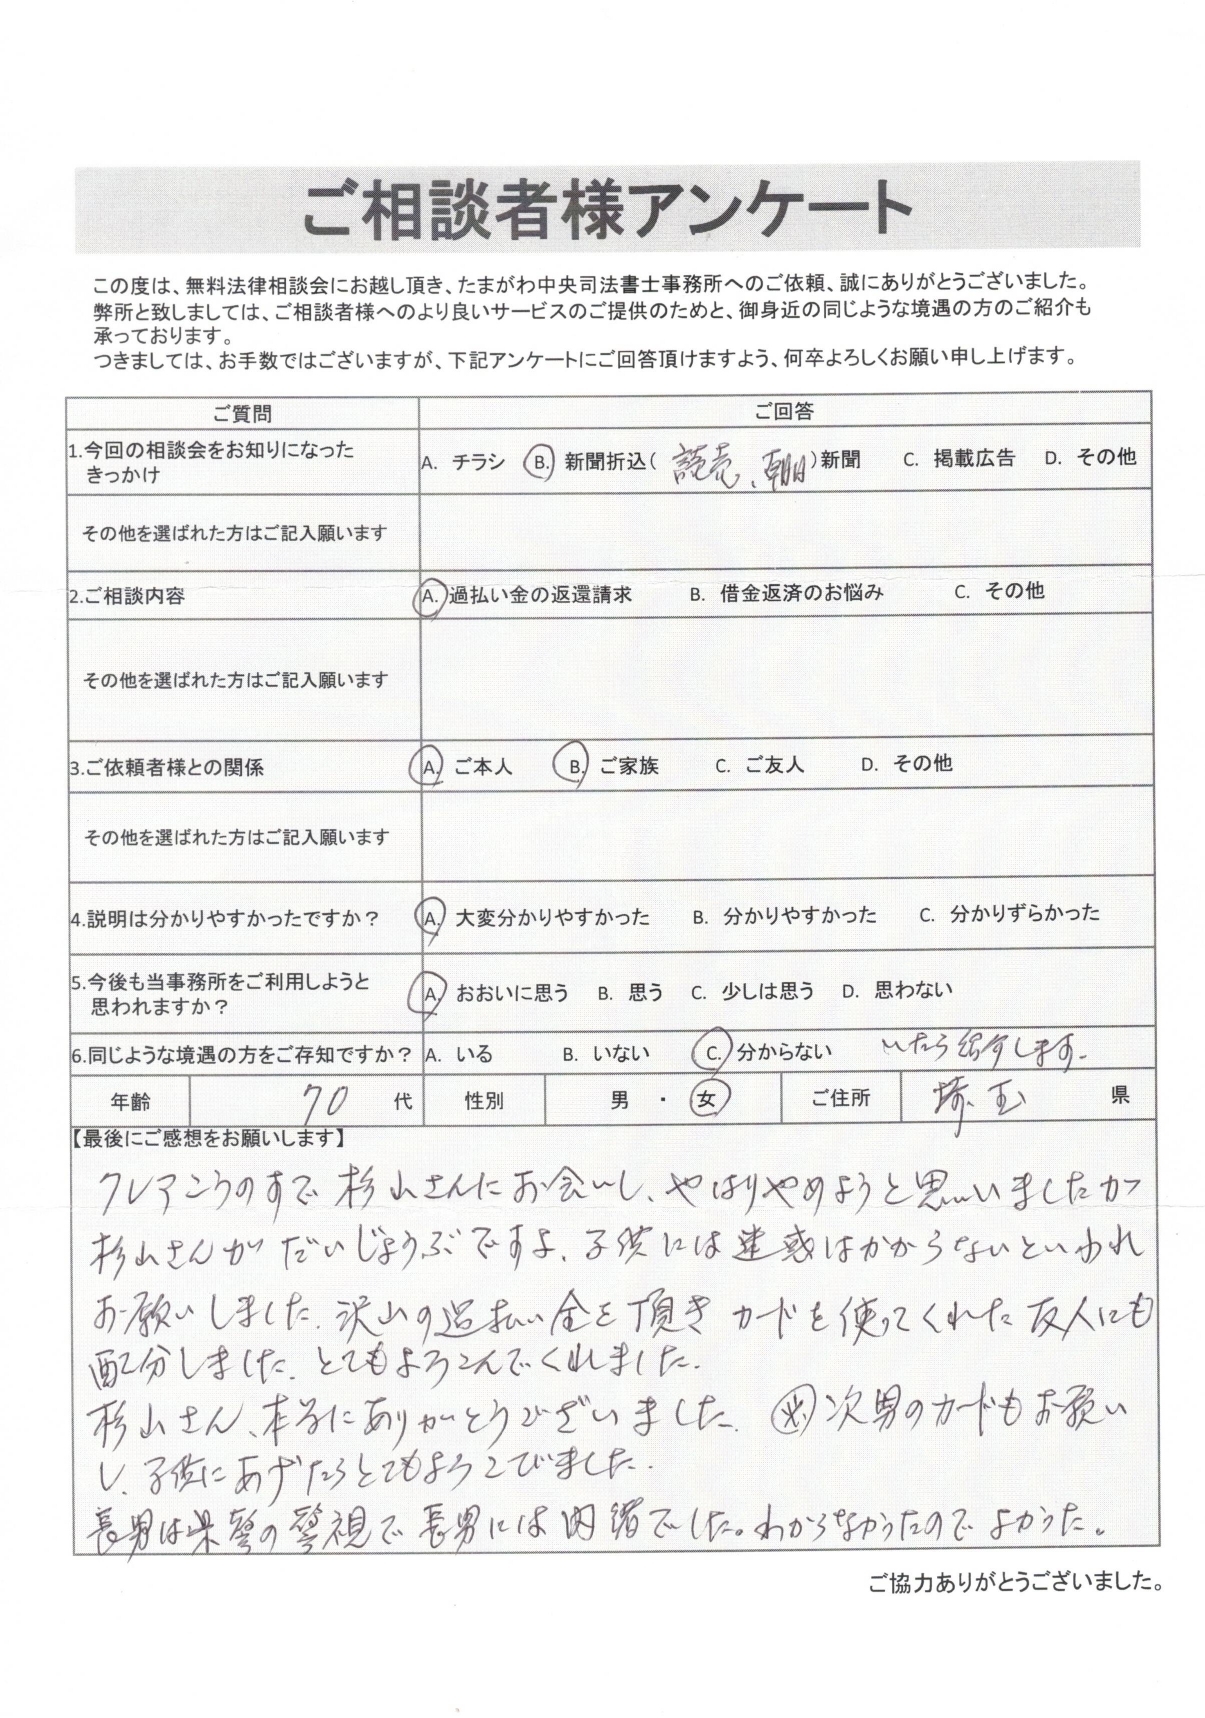 ご相談者様アンケート
この度は、無料法律相談会にお越し頂き、たまがわ中央司法書士事務所へのご依頼、誠にありがとうございました。
弊所と致しましては、ご相談者様へのより良いサービスのご提供のためと、御身近の同じような境遇の方のご紹介も
承っております。
つきましては、お手数ではございますが、下記アンケートにご回答頂けますよう、何卒よろしくお願い申し上げます。
ご質問 ご回答
1.今回の相談会をお知りになった
きっかけ
A. チラシ B. 新聞折込(読売、朝日)新聞 C. 掲載広告 D. その他
その他を選ばれた方はご記入願います
2.ご相談内容 A. 過払い金の返還請求 B. 借金返済のお悩み C. その他
その他を選ばれた方はご記入願います
3.ご依頼者様との関係 A. ご本人 B. ご家族 C. ご友人 D. その他
その他を選ばれた方はご記入願います
4.説明は分かりやすかったですか? A. 大変分かりやすかった B. 分かりやすかった C. 分かりずらかった
5.今後も当事務所をご利用しようと
思われますか?
A. おおいに思う B. 思う C. 少しは思う D. 思わない
6.同じような境遇の方をご存知ですか? A. いる B. いない C. 分からない いたら紹介します。
年齢 70 代 性別 男 ・ 女 ご住所 埼玉 県
【最後にご感想をお願いします】
クレアこうのすで 杉山さんにお会いし、やはりやめようと思いましたが
杉山さんが だいじょうぶですよ、子供には迷惑はかからないといわれ
お願いしました。沢山の過払い金を頂き カードを使ってくれた友人にも
配分しました。とてもよろこんでくれました。
杉山さん、本当にありがとうございました。 次男のカードもお願い
し、子供にあげたらとてもよろこびました。
長男は県警の警視で長男には内緒でした。わからなかったのでよかった。
ご協力ありがとうございました。